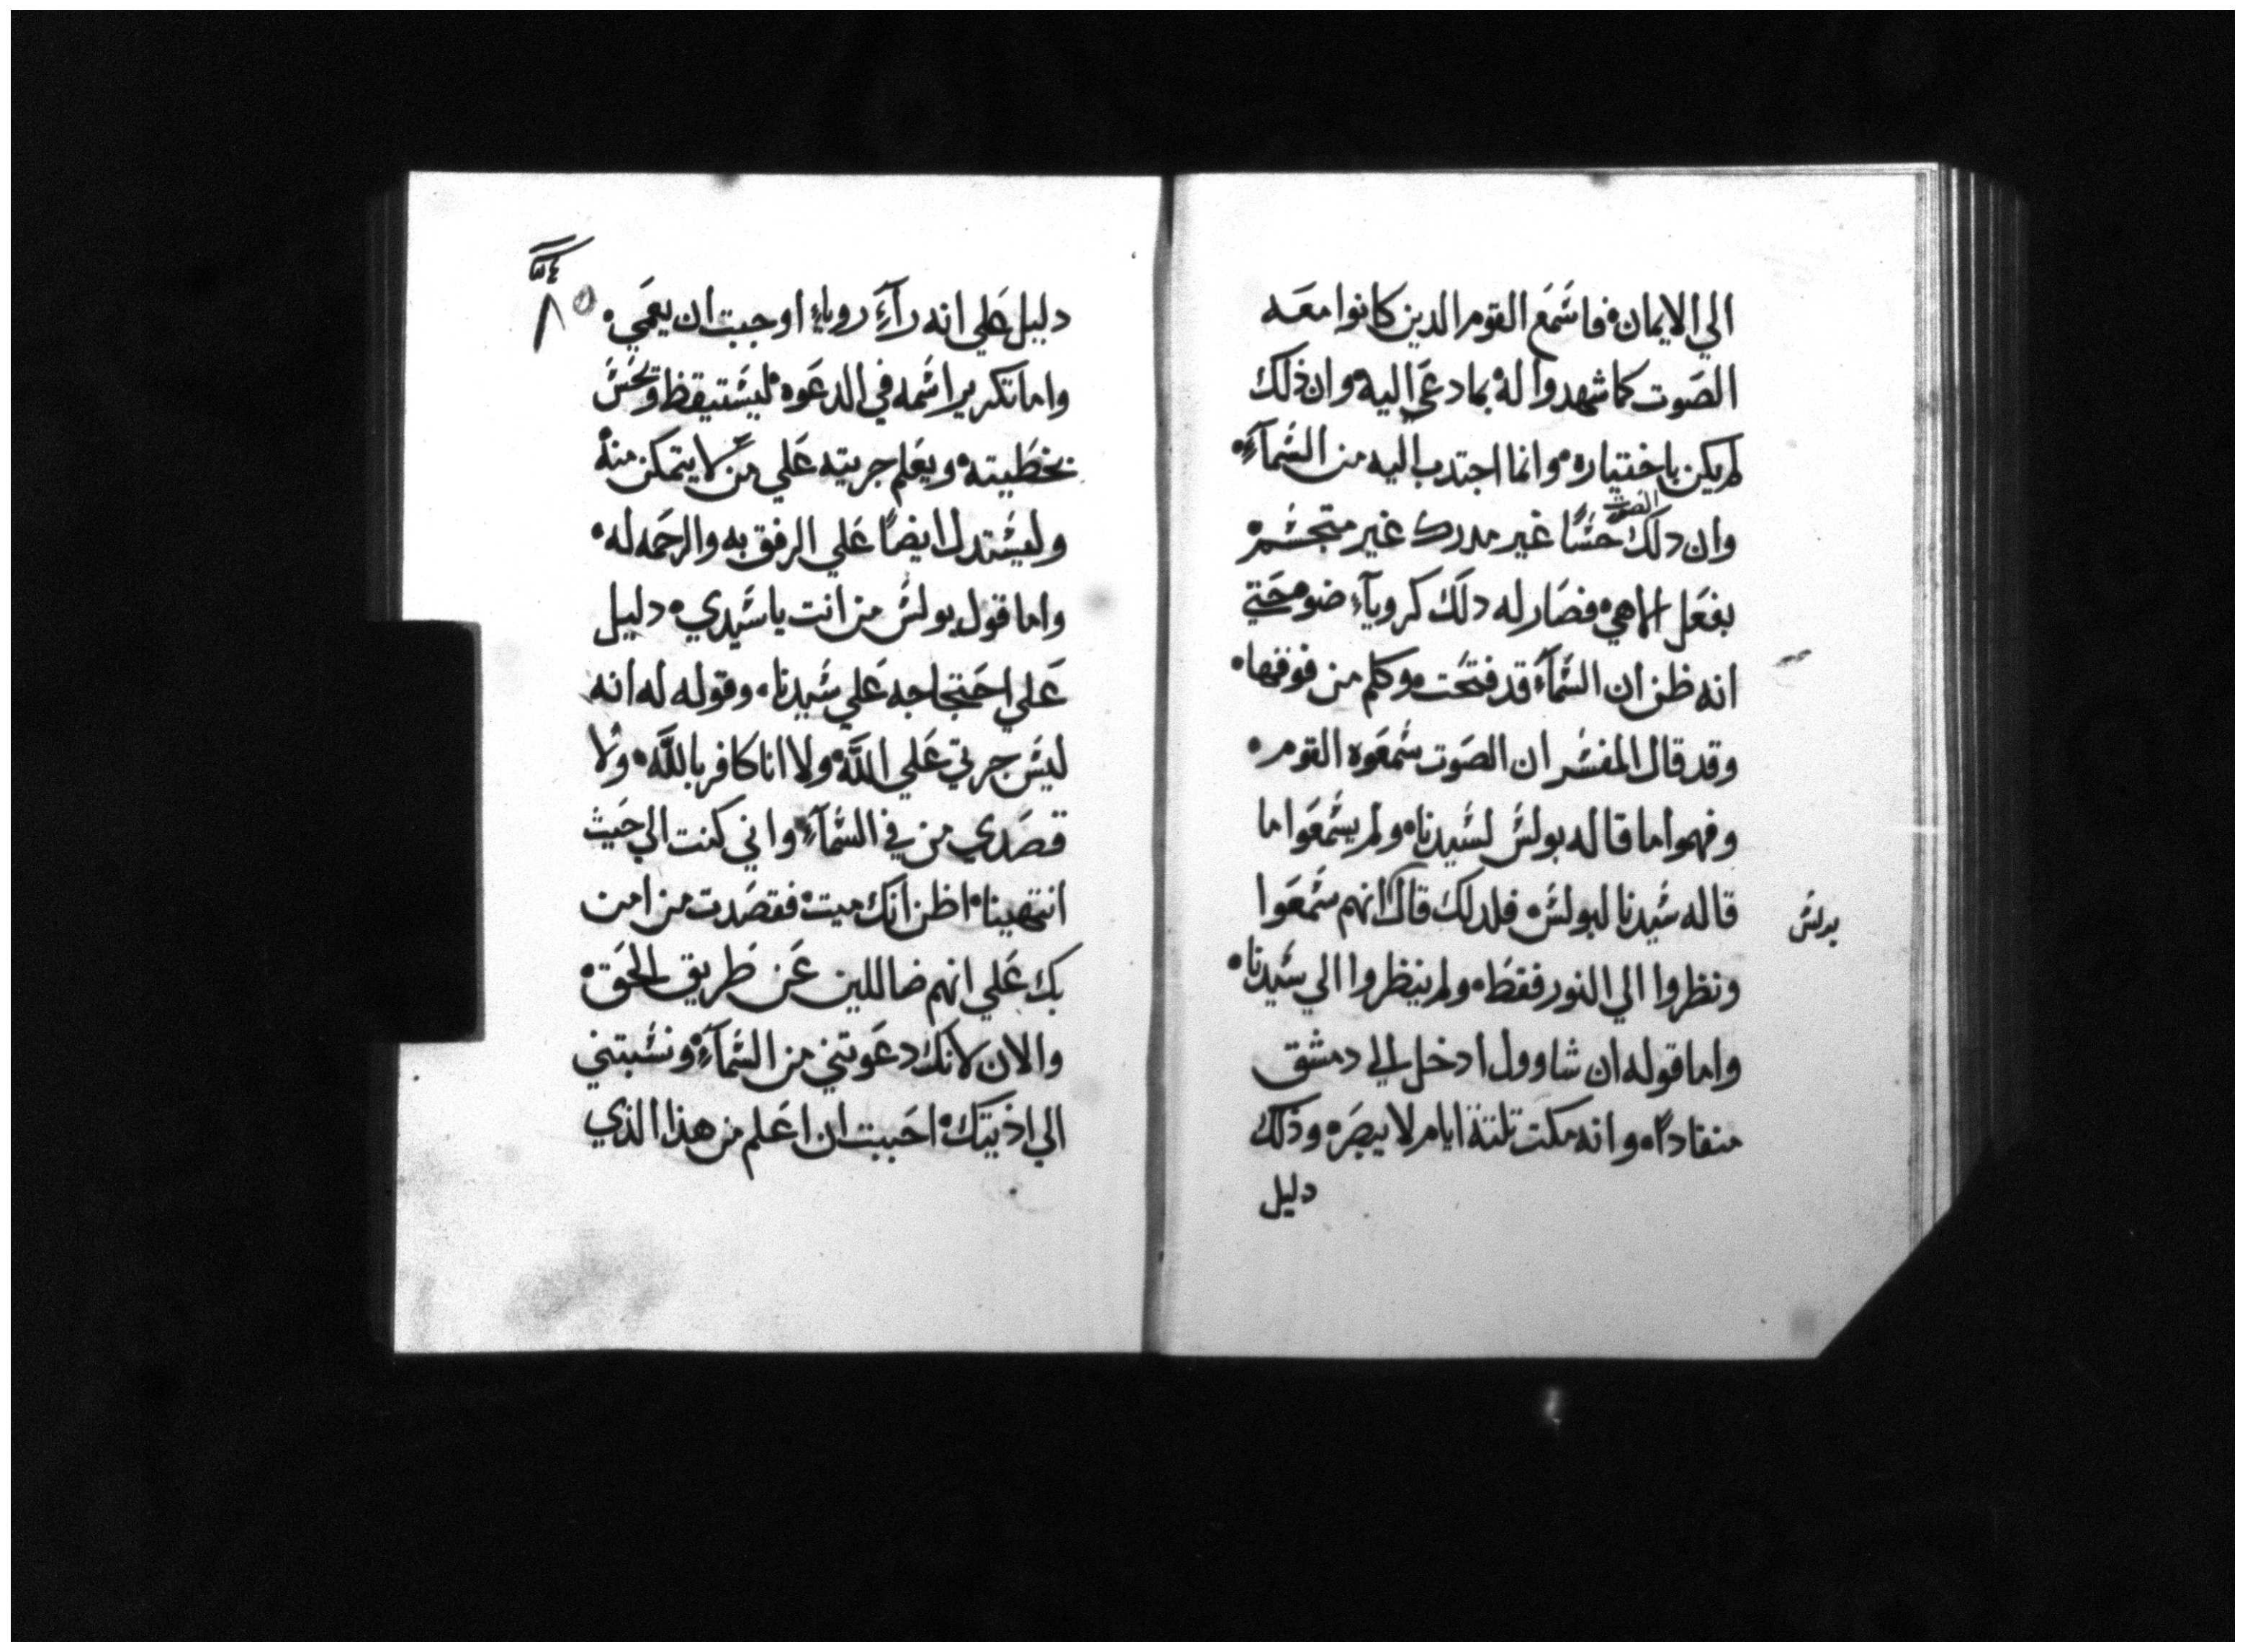 الي الايمان۰ فاسَمَع القوم الدين كانوا معَه
الصَوت كما شهدوا له بما دعَي اليه۰ وان ذلك
لم يكن باختياره۰ وانما اجتدب اليه من السَمآءِ۰
وان دلك الصوت حسًا غير مدرك غير متجسَم۰
بفعَل الاهي۰ فصَار له دلك كروياءِ ضو حَتي
انه ظن ان السَمآء قد فتحَت۰ وكلم من فوقها۰
وقد قال المفسَر ان الصَوت سَمعَوه القوم۰
وفهموا ما قاله بولسَ لسَيدنا۰ ولم يسَمعَوا ما
قاله سَيدنا لبولسَ۰ فلدلك قال انهم سَمعَوا
بولسَ
ونظروا الي النور فقطَ۰ ولم ينظروا الي سَيدنا۰
واما قوله ان شاوول ادخل الي دمشق
منقادًا۰ وانه مكت تلتة ايام لا يبصَر۰ وذلك
دليل
٨٥
دليل عَلي انه رآءَ روياءِ اوجبت ان يعَمي۰
واما تكرير اسَمه في الدعَوه۰ ليسَتيقظ وتحَسَ
بخطَيته۰ ويعَلم جريته عَلي مَن لا يتمكن منه۰
وليسَتدل ايضًا عَلي الرفق به والرحَمه له۰
واما قول بولسَ من انت يا سَيدي۰ دليل
عَلي احَتجاجه عَلي سَيدنا۰ وقوله له انه
ليسَ جرتي عَلي اللَّه۰ ولا انا كافر باللَّه۰ ولا
قصَدي من في السَمآءِ۰ واني كنت الي حَيث
انتهينا۰ اظن انك ميت۰ فقصَدت من امن
بك عَلي انهم ضاللين عَن طَريق الحَق۰
والان لانك دعَوتني من السَمآءِ۰ ونسَبتني
الي اذيتك۰ احَببت ان اعَلم من هذا الذي